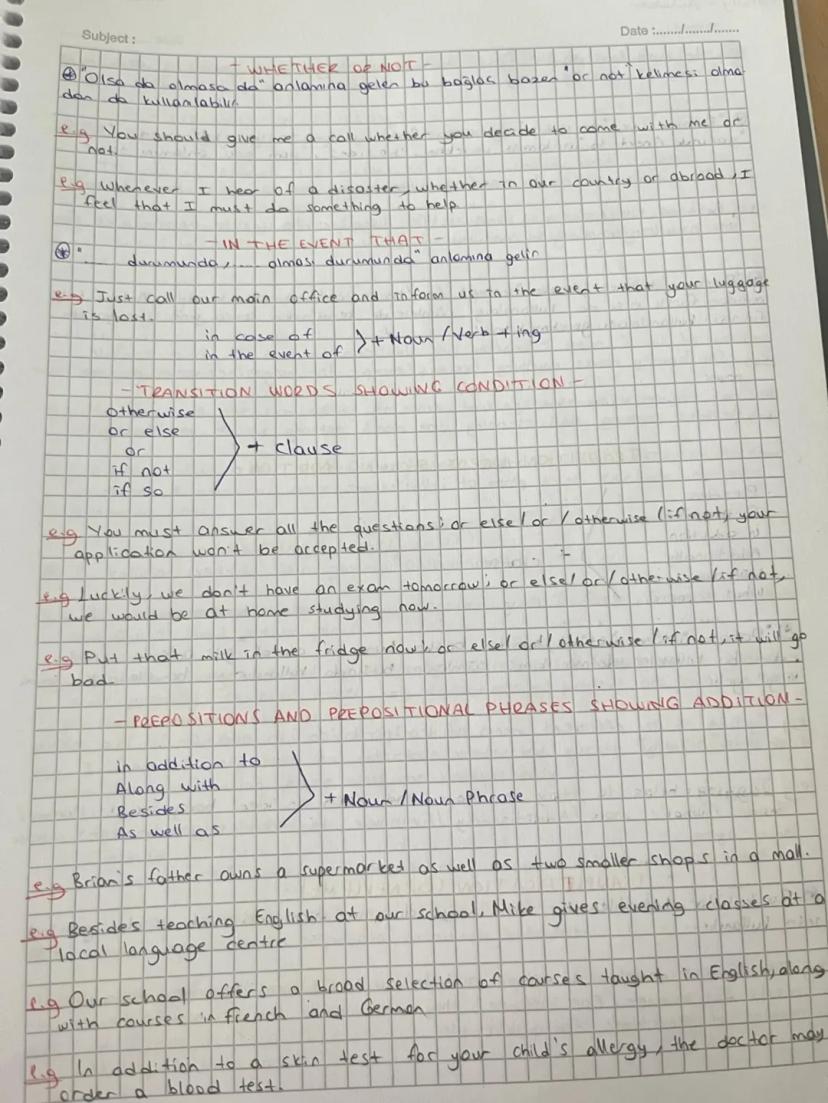 Subject :
Date :......./......./.......
- WHETHER OR NOT -
"Olsa da olmasa da" anlamına gelen bu bağlaç bazen "or not" kelimesi olma
dan da kullanılabilir.
e.g You should give me a call whether you decide to come with me or
not.
e.g Whenever I hear of a disaster, whether in our country or abroad, I
feel that I must do something to help
- IN THE EVENT THAT -
"..... durumunda, .... olması durumunda" anlamına gelir
e.g Just call our main office and inform us in the event that your luggage
is lost.
in case of
in the event of } + Noun / Verb + ing
- TRANSITION WORDS SHOWING CONDITION -
otherwise
or else
or } + clause
if not
if so
e.g You must answer all the questions; or else / or / otherwise / if not, your
application won't be accepted.
e.g Luckily, we don't have an exam tomorrow; or else / or / otherwise / if not,
we would be at home studying now.
e.g Put that milk in the fridge now; or else / or / otherwise / if not, it will go
bad.
- PREPOSITIONS AND PREPOSITIONAL PHRASES SHOWING ADDITION -
in addition to
Along with
Besides } + Noun / Noun Phrase
As well as
e.g Brian's father owns a supermarket as well as two smaller shops in a mall.
e.g Besides teaching English at our school, Mike gives evening classes at a
local language centre
e.g Our school offers a broad selection of courses taught in English, along
with courses in french and German
e.g In addition to a skin test for your child's allergy, the doctor may
order a blood test.